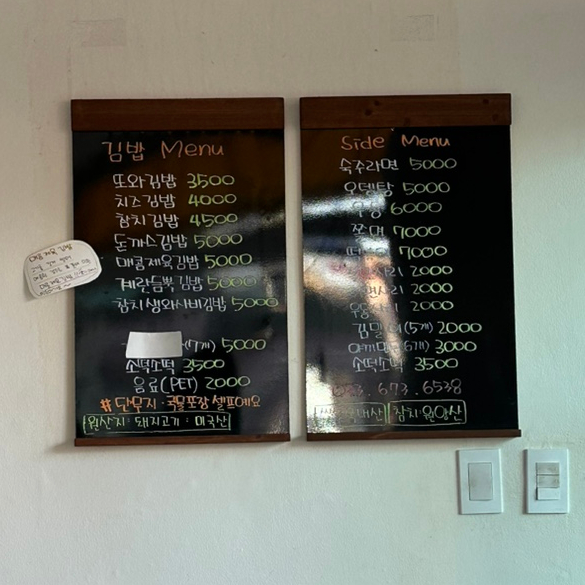 김밥 Menu
또와김밥 3500
치즈김밥 4000
참치김밥 4500
돈까스김밥 5000
매콤제육김밥 5000
계란듬뿍김밥 5000
참치생와사비김밥 5000
(7개) 5000
소떡소떡 3500
음료(PET) 2000
#단무지·국물포장셀프에요
원산지: 돼지고기: 미국산
Side Menu
숙주라면 5000
오뎅탕 5000
우동 6000
쫄면 7000
7000
사리 2000
면사리 2000
우동사리 2000
김말이(5개) 2000
야끼만두(6개) 3000
소떡소떡 3500
673.6538
참치:원양산